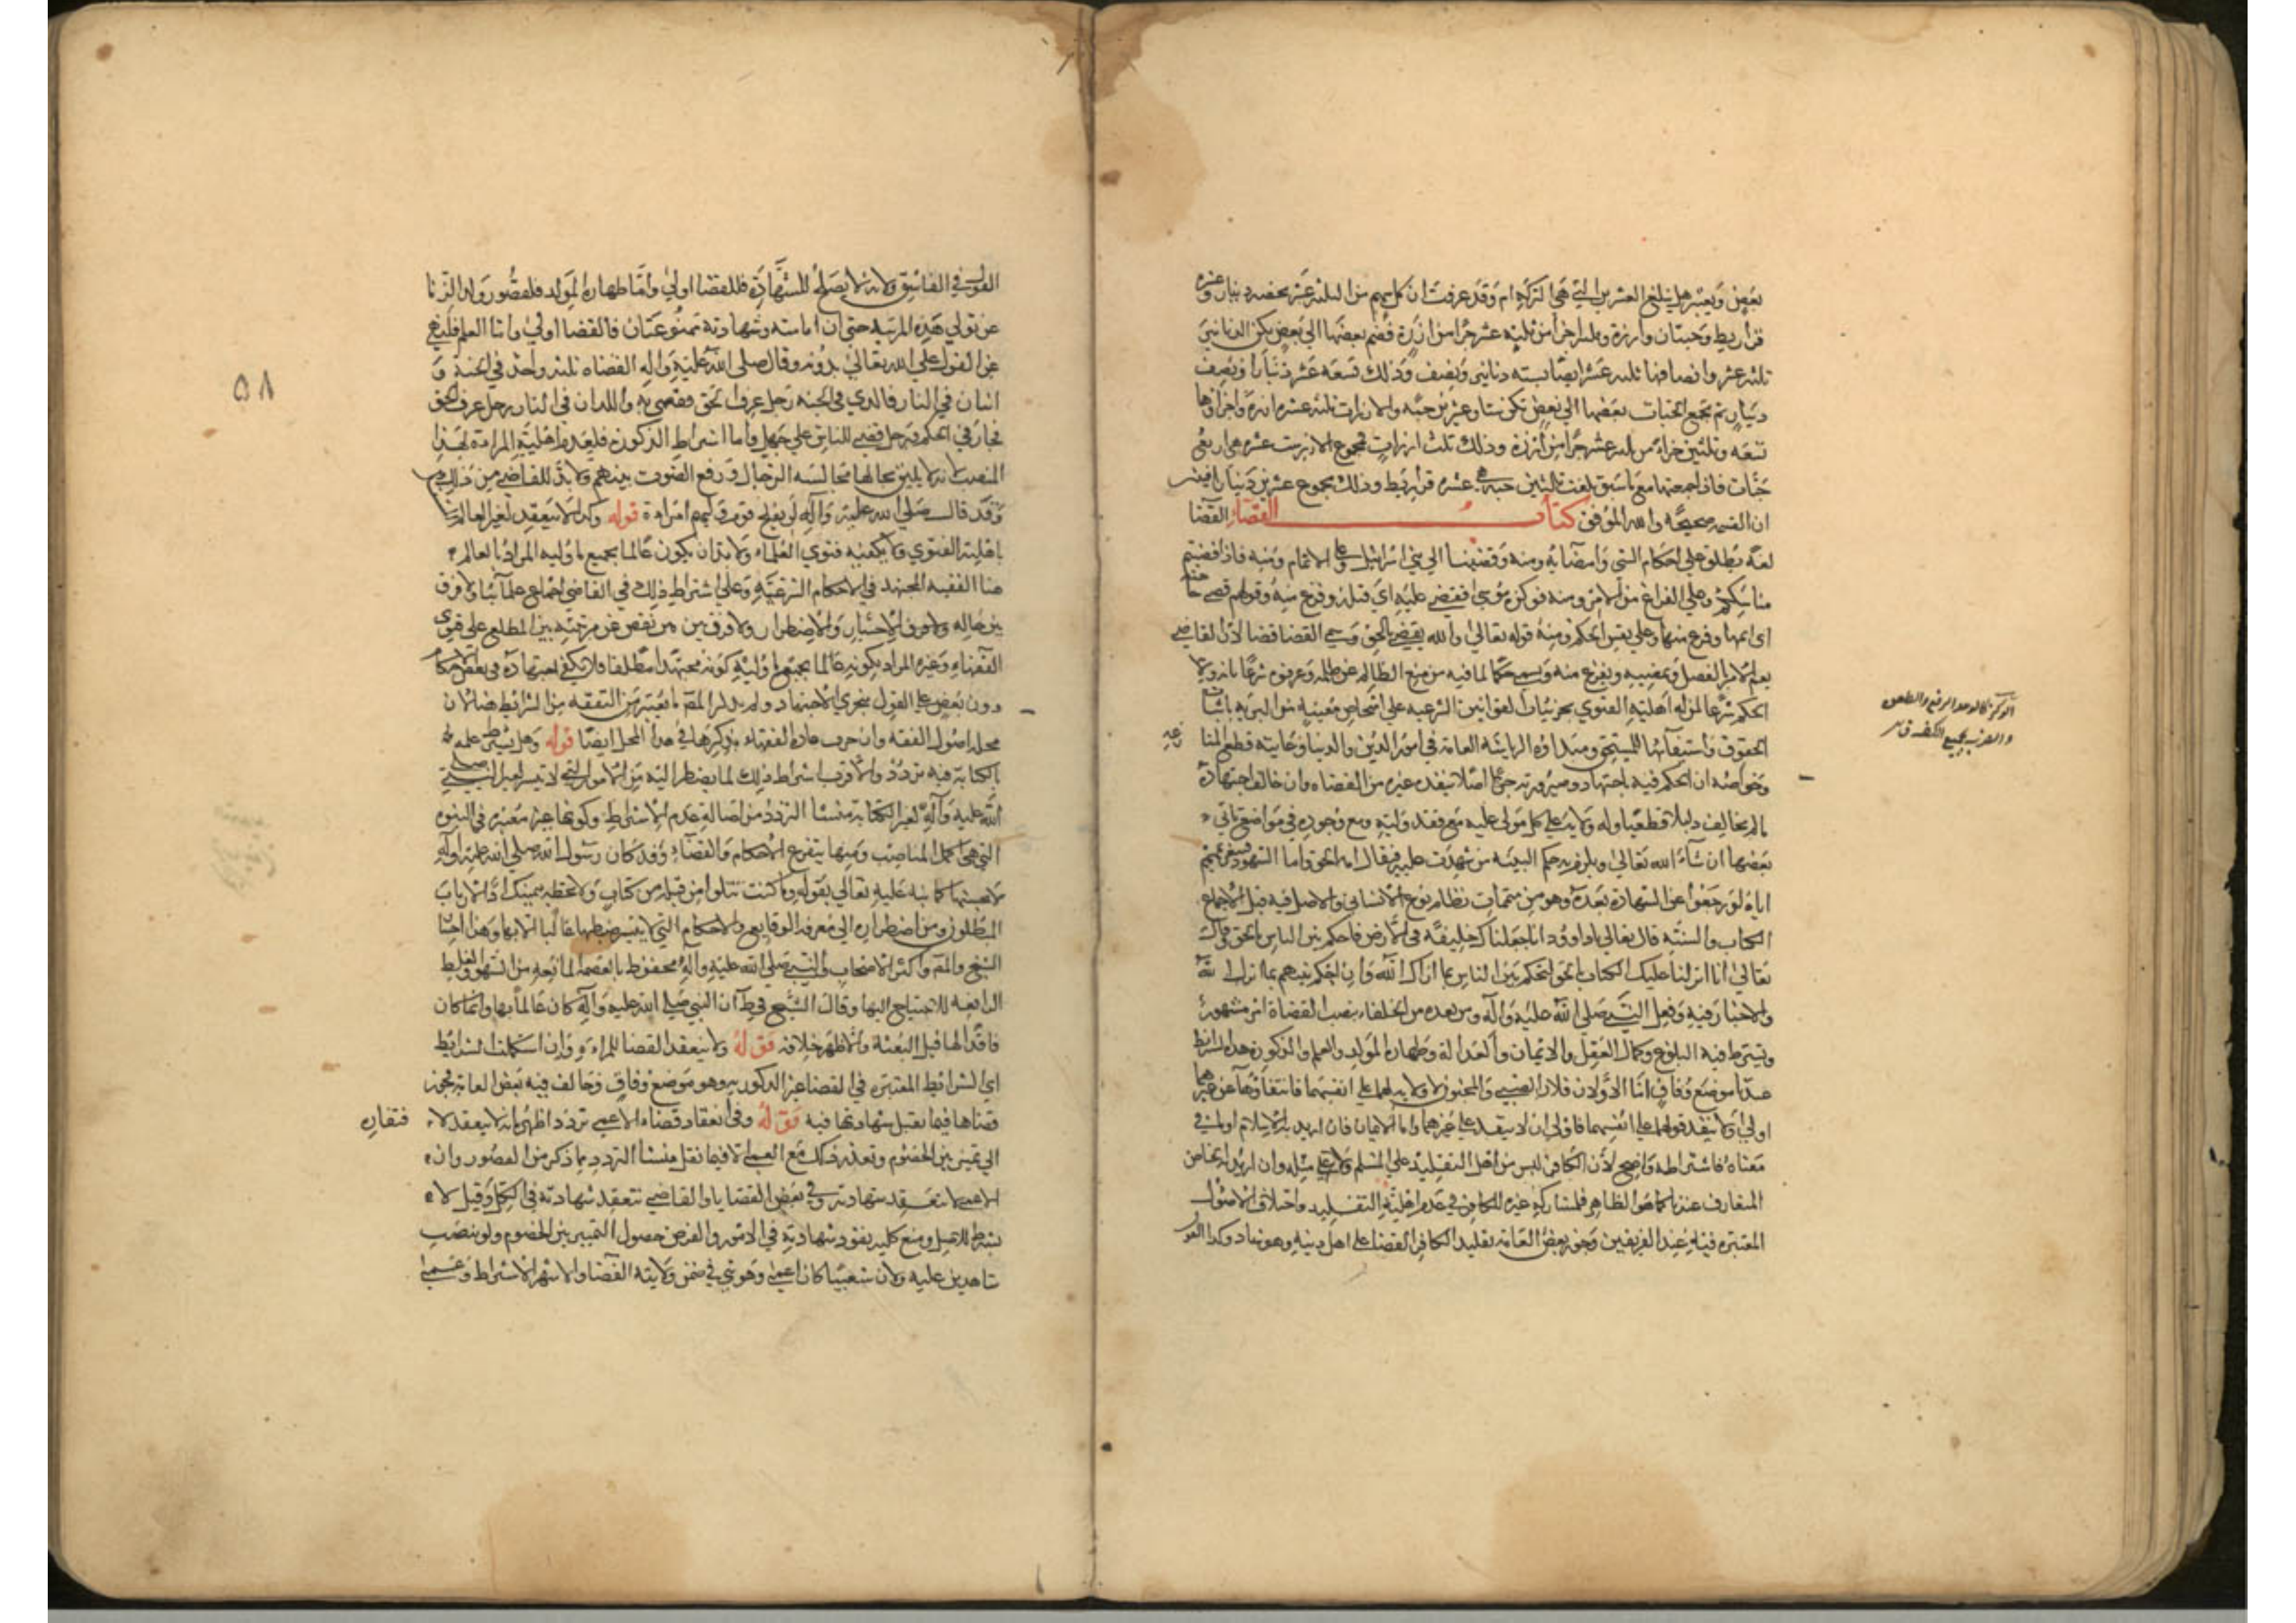 بعض ويعتبر هل يبلغ العشرين التي هي التركة ام وقد عرفت ان كل سهم من الثلثة عشر يخصه دينار وعشرة
قراريط وحبتان وارزة وثلثة اجزاء من ثلثة عشر جزءا من ارزة فضم بعضها الى بعض يكن الدنانير
ثلثة عشر وانصافها ثلثة عشر ايضا بستة دنانير ونصف وذلك تسعة عشر دينارا ونصف
دينار ثم تجمع الحبات بعضها الى بعض تكن ستا وعشرين حبة والارزات ثلثة عشر ارزة واجزاؤها
تسعة وثلثين جزءا من ثلثة عشر جزءا من ارزة وذلك ثلث ارزات فمجموع الارز ست عشرة هي اربع
حبات فاذا جمعتها مع ما سبق بلغت ثلثين حبة هي عشرة قراريط وذلك مجموع عشرين دينارا
ان القسمة صحيحة والله الموفق كتاب القضاء القضا
لغة يطلق على احكام الشي وامضائه ومنه وقضينا الى بني اسرائيل وعلى الاتمام ومنه فاذا قضيتم
مناسككم وعلى الفراغ من الامر ومنه فوكزه موسى فقضى عليه اي قتله وفرغ منه وقولهم قضى حاجته
اي اتمها وفرغ منها وعلى نفس الحكم ومنه قوله تعالى والله يقضي بالحق وسمي القضا قضا لان القاضي
يتم الامر بالفصل ويمضيه ويفرغ منه ويسمى حكما لما فيه من منع الظالم عن ظلمه وعرفوه شرعا بانه ولاية
الحكم شرعا لمن له اهلية الفتوى بجزئيات القوانين الشرعية على اشخاص معينة من البرية باثبات
الحقوق واستيفائها للمستحق ومبداؤه الرياسة العامة في امور الدين والدنيا وغايته قطع المنا
زعة
وخواصه ان الحكم فيه باجتهاد وصيرورته حجة اصلا لا ينقده غيره من القضاه وان خالف اجتهاده
ما لم يخالف دليلا قطعيا وله ولاية على كل مولى عليه مع فقد وليه ومع وجوده في مواضع تاتي
بعضها ان شاء الله تعالى ويلزم به حكم البينة من شهدت عليه
اياه لو رجعوا عن الشهادة بعده وهو من متممات نظام نوع الانساني والاصل فيه قبل الاجماع
الكتاب والسنة قال تعالى يا داوود انا جعلناك خليفة في الارض فاحكم بين الناس بالحق وقال
تعالى انا انزلنا عليك الكتاب بالحق لتحكم بين الناس بما اراك الله وان احكم بينهم بما انزل الله
والاخبار فيه وفعل النبي صلى الله عليه وآله ومن بعده من الخلفاء بنصب القضاة امر مشهور
ويشترط فيه البلوغ وكمال العقل والايمان والعدالة وطهارة المولد والعلم والذكورة هذه الشرائط
عندنا موضع وفاق اما الاولان فلان الصبي والمجنون لا ولاية لهما على انفسهما فانتفاؤها عن غيرهما
اولى ولا ينفد قولهما على انفسهما فاولى ان لا ينفد على غيرهما واما الايمان فان اريد به الاسلام او ما في
معناه فاشتراطه واضح لان الكافر ليس من اهل التقليد على المسلم ولا على مثله وان اريد الخاص
المتعارف عندنا كما هو الظاهر فلمشاركة غيره للكافر في عدم اهلية التقليد واختلاف الاصول
المعتبره فيه عند الفريقين وجوز بعض العامة تقليد الكافر القضا على اهل دينه وهو شاذ وكذا القو
الوكز كالوعد الدفع والطعن
والضرب بجميع الكف ق
٥٨
القول في الفاسق ولانه لا يصلح للشهادة فللقضا اولى واما طهارة المولد فلقصور ولد الزنا
عن تولي هذه المرتبة حتى ان امامته وشهادته ممنوعتان فالقضا اولى واما العلم فللنهي
عن القول على الله تعالى بدونه وقال صلى الله عليه وآله القضاه ثلثة واحد في الجنة و
اثنان في النار فالذي في الجنة رجل عرف الحق فقضى به واللذان في النار رجل عرف الحق
فجار في الحكم ورجل قضى للناس على جهل واما اشتراط الذكورة فلعدم اهلية المراءة لهذا
المنصب لانه لا يليق بحالها مجالسة الرجال ورفع الصوت بينهم ولا بد للقاضي من ذلك
وقد قال صلى الله عليه وآله لن يفلح قوم وليتهم امراءة قوله وكذا لا ينعقد لغير العالم
باهلية الفتوى ولا يكفيه فتوى العلماء ولا بد ان يكون عالما بجميع ما وليه المراد بالعالم
هنا الفقيه المجتهد في الاحكام الشرعية وعلى اشتراط ذلك في القاضي اجماع علمائنا ولا فرق
بين حالة الاختيار والاضطرار ولا فرق بين من نقص عن مرتبته بين المطلع على فتوى
الفقهاء وغيره المراد بكونه عالما بجميع ما وليه كونه مجتهدا مطلقا فلا يكفي اجتهاده في بعض الاحكام
دون بعض على القول بتجزي الاجتهاد ولم يذكر المص ما يعتبر من التفقه من الشرائط هنا لان
محله اصول الفقه وان جرت عادة الفقهاء بذكرها في هذا المحل ايضا قوله وهل يشترط علمه
بالكتابة فيه تردد والاقرب اشتراط ذلك لما يضطر اليه من الامور التي لا تتيسر لغير النبي صلى
الله عليه وآله لغير الكتابة منشا التردد من اصالة عدم الاشتراط وكونها غير معتبرة في النبوه
التي هي اكمل المناصب ومنها يتفرع الاحكام والقضاء وقد كان رسول الله صلى الله عليه وآله
لا يحسنها كما نبه عليه تعالى بقوله وما كنت تتلوا من قبله من كتاب ولا تخطه بيمينك اذا لارتاب
المبطلون ومن اضطراره الى معرفة الوقايع والاحكام التي لا يتيسر ضبطها غالبا الا بها وهذا اختيار
الشيخ والمص واكثر الاصحاب والنبي صلى الله عليه وآله محفوظ بالعصمة المانعة من السهو والغلط
الدافعة للاحتياج اليها وقال الشيخ في ط ان النبي صلى الله عليه وآله كان عالما بها وانما كان
فاقدا لها قبل البعثة والاظهر خلافه قوله ولا ينعقد القضا للمراءة وان استكملت الشرائط
اي الشرائط المعتبره في القضا غير الذكورية وهو موضع وفاق وخالف فيه بعض العامة فجوز
قضاها فيما تقبل شهادتها فيه قوله وفي انعقاد قضاء الاعمى تردد اظهره انه لا ينعقد لا
فتقاره
الى تمييز بين الخصوم وتعذر ذلك مع العمى الا فيما نقل منشا التردد مما ذكر من القصور وان
الاعمى لا تنعقد شهادته في بعض القضايا والقاضي تنعقد شهادته في الكل وقيل لا
يشترط للاصل ومنع كلية نفوذ شهادته في الامور والفرض حصول التمييز بين الخصوم ولو بنصب
شاهدين عليه ولان شعيبا كان اعمى وهو نبي في ضمن ولايته القضا والاشهر الاشتراط وعمى